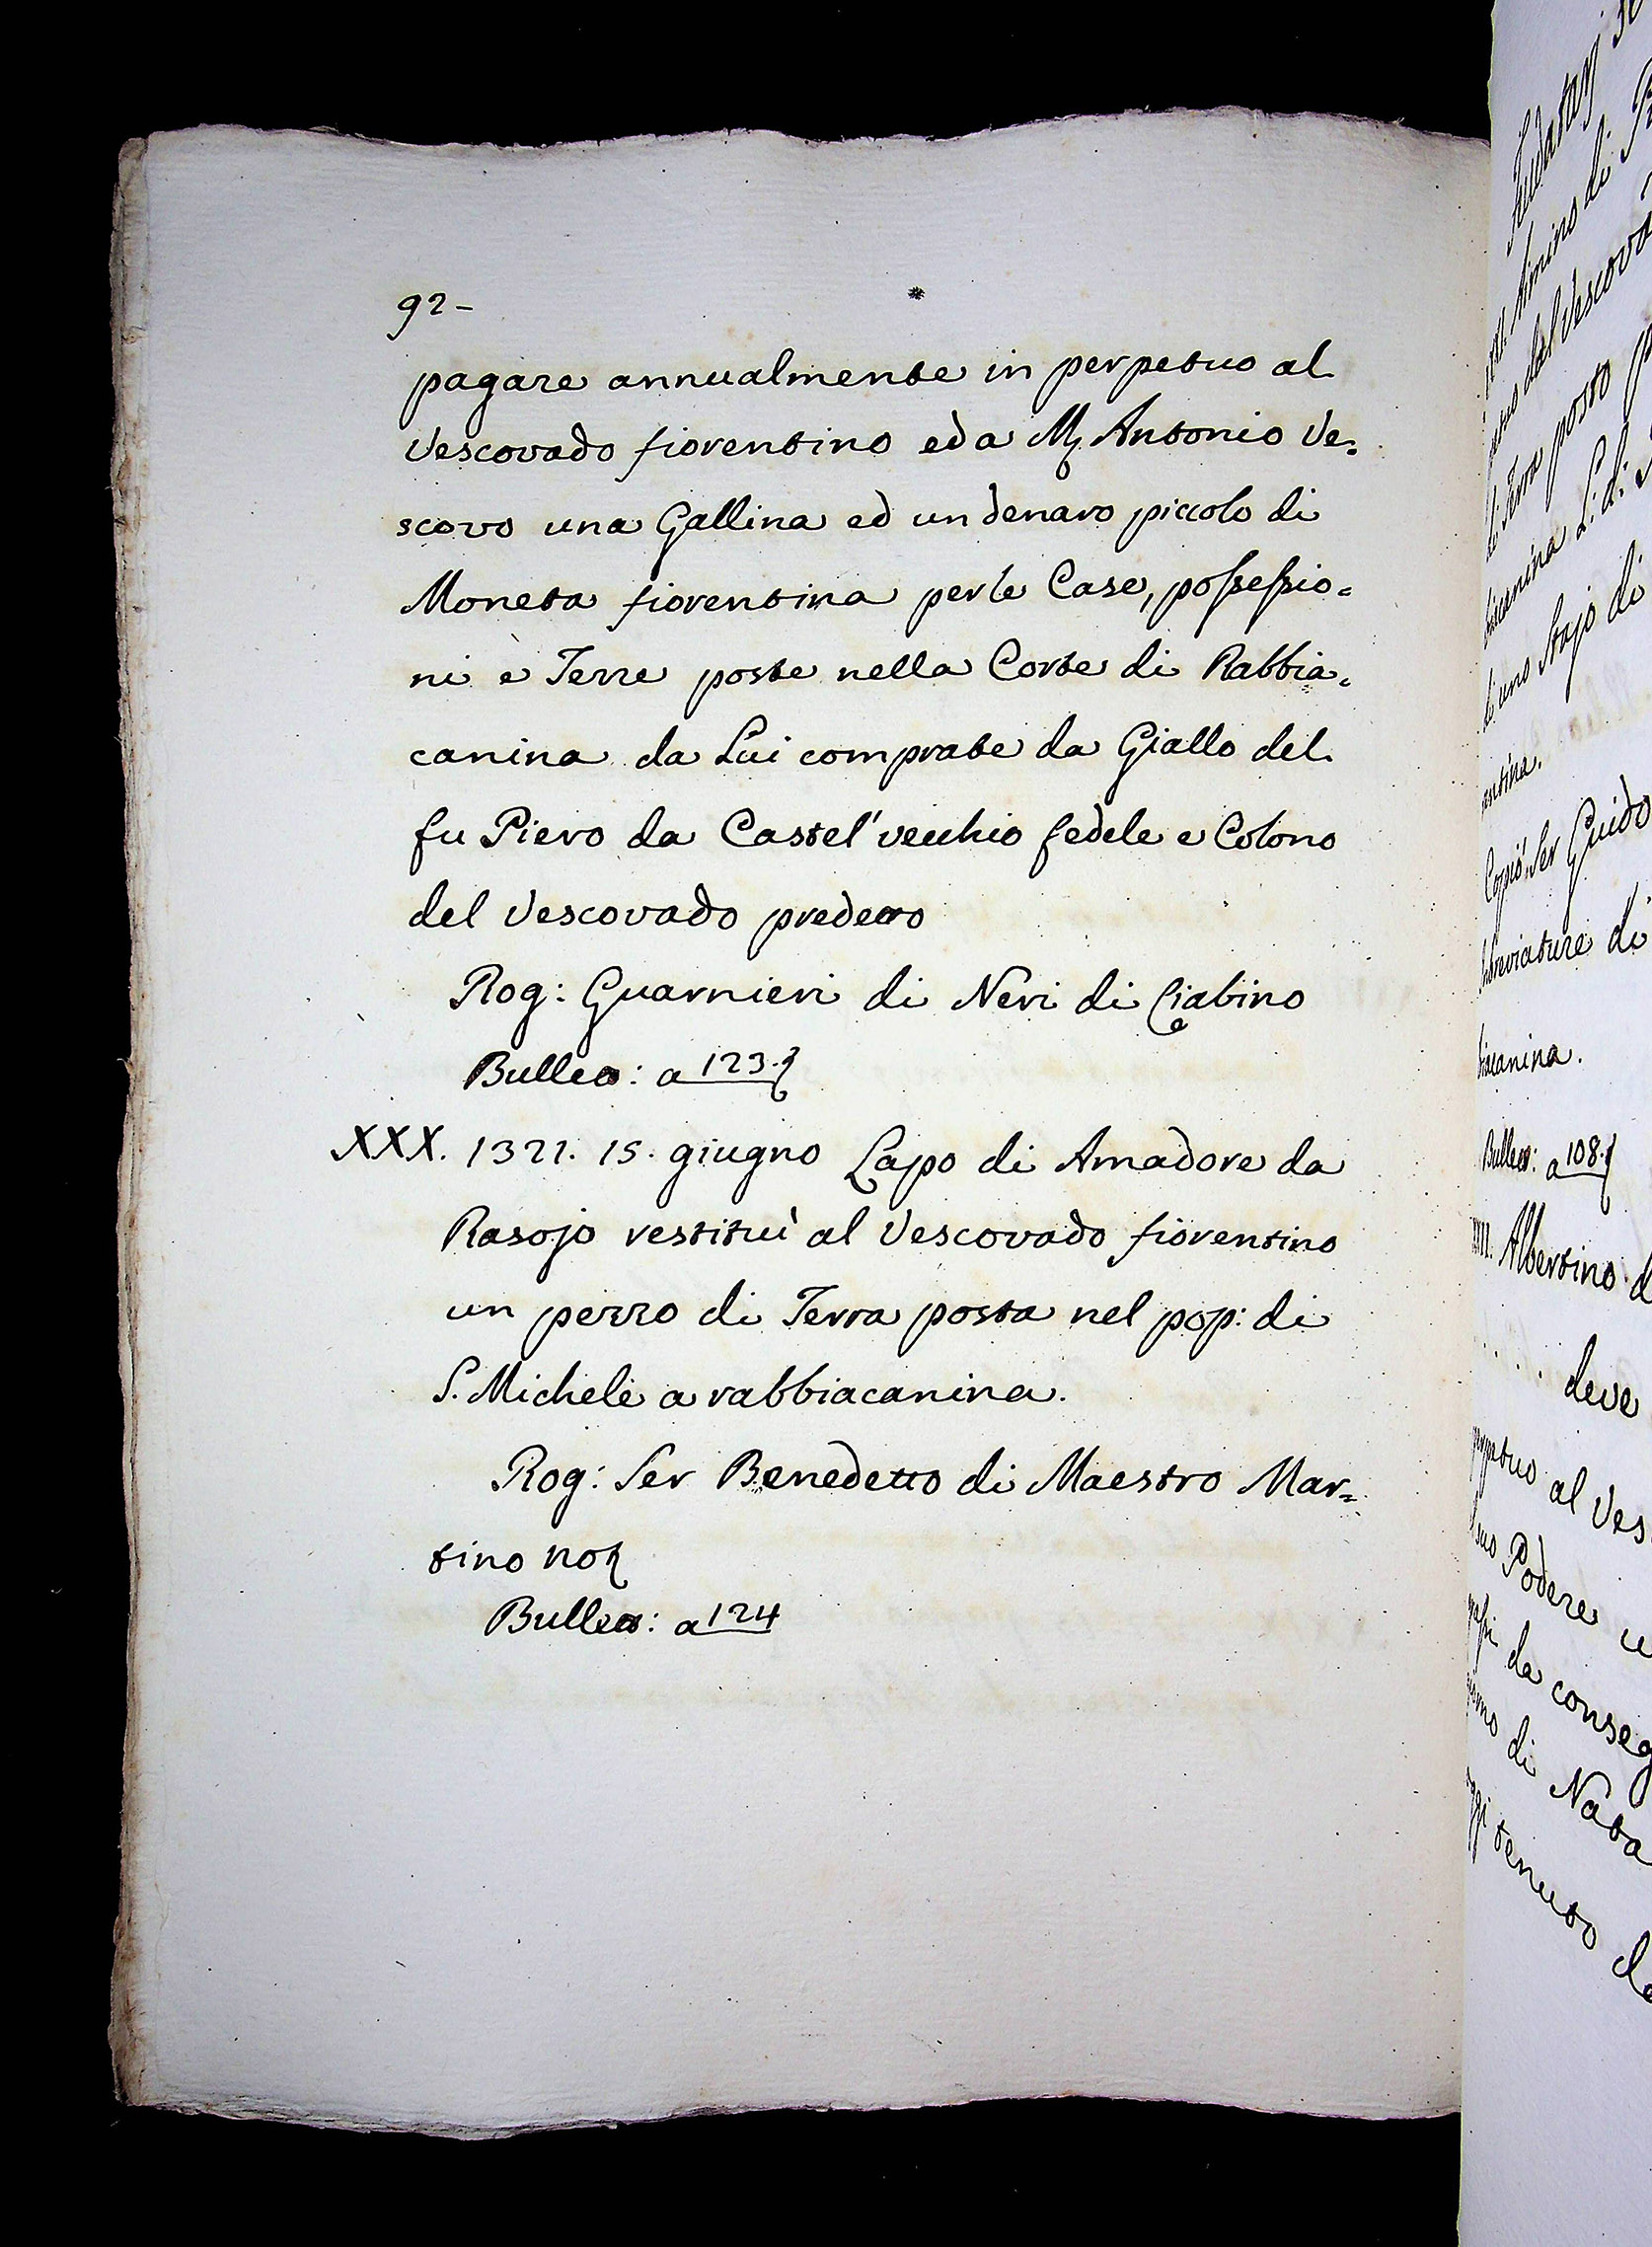 92-
pagare annualmente in perpetuo al
Vescovado fiorentino ed a M. Antonio Ve=
scovo una Gallina ed un denaro piccolo di
Moneta fiorentina per le Case, possessio=
ni e Terre poste nella Corte di Rabbia=
canina da Lui comprate da Giallo del
fu Piero da Castel' vecchio fedele e Colono
del Vescovado predetto
Rog: Guarnieri di Neri di Ciabino
Bullett: a 123.
XXX. 1321. 15. giugno Lapo di Amadore da
Rasojo restituì al Vescovado fiorentino
un pezzo di Terra posta nel pop: di
S. Michele a rabbiacanina.
Rog: Ser Benedetto di Maestro Mar=
tino not
Bullett: a 124
Feudatarj
Simino di
dal Vescova
di Terra posto
L. di
di uno Stajo di
Copiò Ser Guido
di
Bullett: a 108.
Albertino d
deve
al Ves
Podere
da conseg
di Nata
tenuto